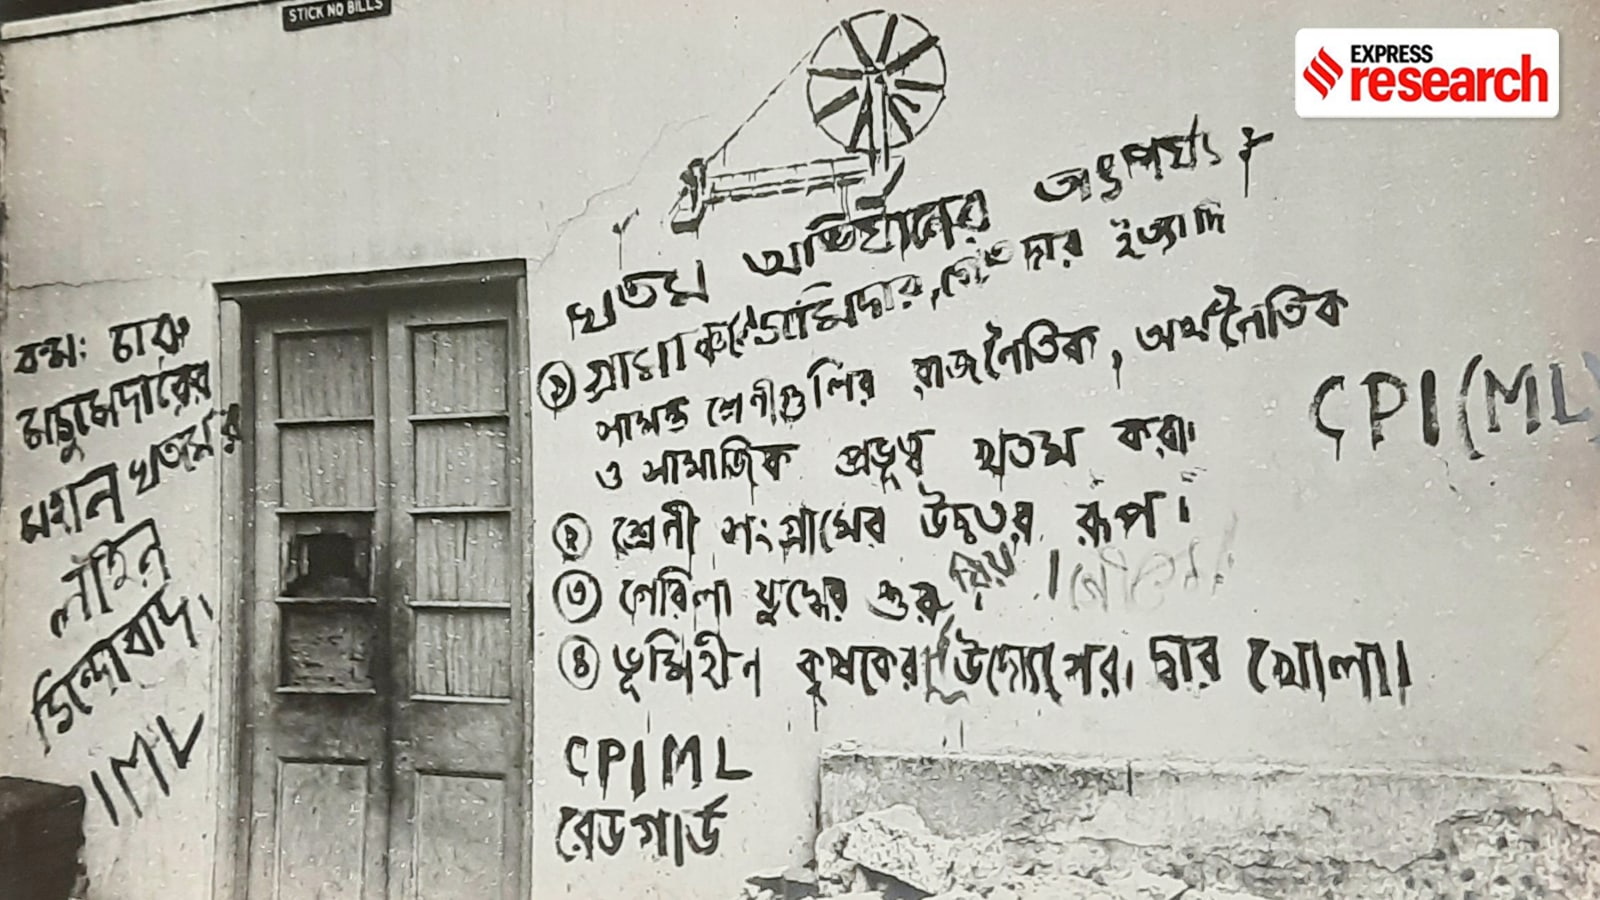 STICK NO BILLS
EXPRESS
research
খতম অভিযানের তাৎপর্য্য ঃ
১ গ্রামাঞ্চলে জমিদার, জোতদার ইত্যাদি
সামন্ত শ্রেণীগুলির রাজনৈতিক, অর্থনৈতিক
ও সামাজিক প্রভূত্ব খতম করা।
২ শ্রেণী সংগ্রামের উচ্চতর রূপ।
৩ গেরিলা যুদ্ধের শুরু
৪ ভূমিহীন কৃষকের উদ্যোগের দ্বার খোলা।
CPIML
রেডগার্ড
CPI(ML)
কমঃ চারু
মজুমদারের
মহান খতমের
লাইন
জিন্দাবাদ।
IML